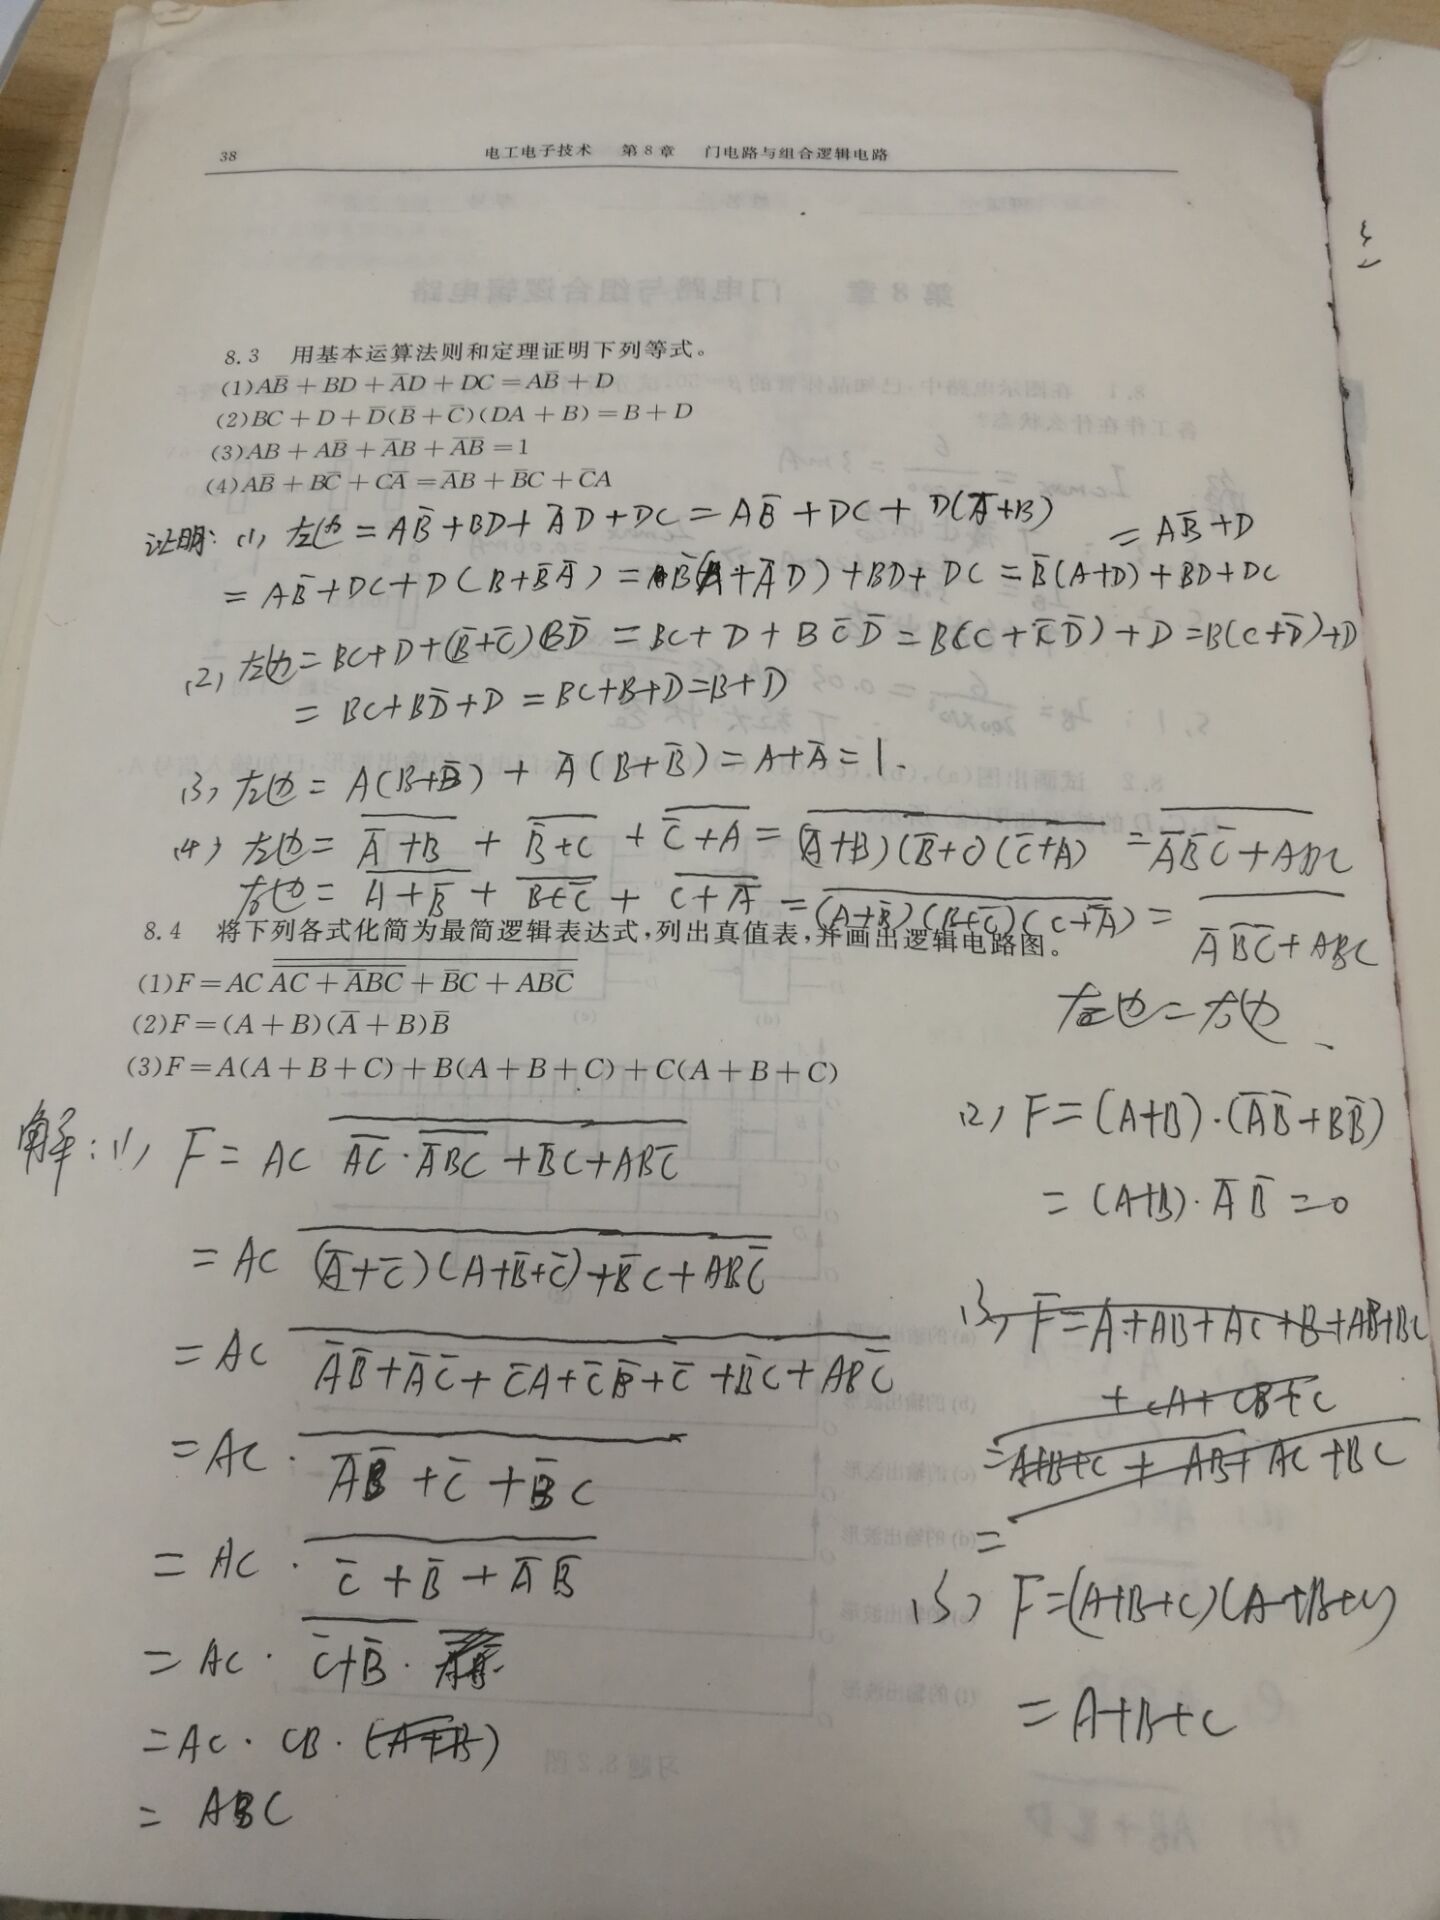 38 电工电子技术 第8章 门电路与组合逻辑电路
8.3 用基本运算法则和定理证明下列等式。
(1)AB̅+BD+A̅D+DC=AB̅+D
(2)BC+D+D̅(B̅+C̅)(DA+B)=B+D
(3)AB+AB̅+A̅B+A̅B̅=1
(4)AB̅+BC̅+CA̅=A̅B+B̅C+C̅A
证明: (1) 左边=AB̅+BD+A̅D+DC=AB̅+DC+D(A̅+B)
=AB̅+DC+D(B+B̅A̅)=B̅(A+A̅D)+BD+DC=B̅(A+D)+BD+DC
=AB̅+D
(2) 左边=BC+D+(B̅+C̅)BD̅=BC+D+BC̅D̅=B(C+C̅D̅)+D=B(C+D̅)+D
=BC+BD̅+D=BC+B+D=B+D
(3) 左边=A(B+B̅)+A̅(B+B̅)=A+A̅=1.
(4) 左边=\overline{A̅+B}+\overline{B̅+C}+\overline{C̅+A}=\overline{(A̅+B)(B̅+C)(C̅+A)}=\overline{A̅B̅C̅+ABC}
右边=\overline{A+B̅}+\overline{B+C̅}+\overline{C+A̅}=\overline{(A+B̅)(B+C̅)(C+A̅)}=\overline{A̅B̅C̅+ABC}
左边=右边
8.4 将下列各式化简为最简逻辑表达式,列出真值表,并画出逻辑电路图。
(1)F=AC\overline{\overline{AC+A̅BC}+B̅C+ABC̅}
(2)F=(A+B)(A̅+B)B̅
(3)F=A(A+B+C)+B(A+B+C)+C(A+B+C)
解:(1) F=AC\overline{\overline{AC}·\overline{A̅BC}+B̅C+ABC̅}
=AC\overline{(A̅+C̅)(A+B̅+C̅)+B̅C+ABC̅}
=AC\overline{A̅B̅+A̅C̅+C̅A+C̅B̅+C̅+B̅C+ABC̅}
=AC·\overline{A̅B̅+C̅+B̅C}
=AC·\overline{C̅+B̅+A̅B̅}
=AC·\overline{C̅+B̅}·
=AC·CB·(A+B)
=ABC
(2) F=(A+B)·(A̅B̅+BB̅)
=(A+B)·A̅B̅=0
(3) F=A+AB+AC+B+AB+BC
+CA+CB+C
=A+B+C+AB+AC+BC
=
(3) F=(A+B+C)(A+B+C)
=A+B+C